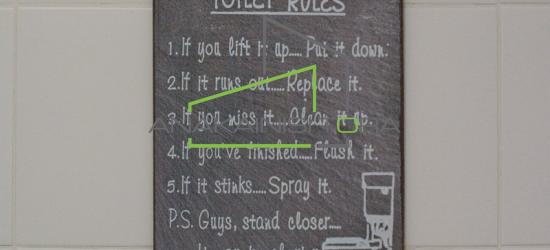 TOILET RULES
1. If you lift it up..... Put it down.
2. If it runs out..... Replace it.
3. If you miss it.... Clean it up.
4. If you've finished..... Flush it.
5. If it stinks..... Spray it.
P.S. Guys, stand closer....